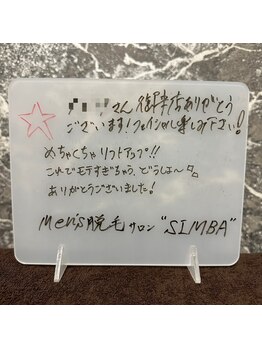 さん 御来店ありがとう
ございます！フェイシャル楽しみ下さい！
めちゃくちゃリフトアップ!!
これでモテすぎちゃう、どうしよ〜
ありがとうございました！
Men's脱毛サロン "SIMBA"